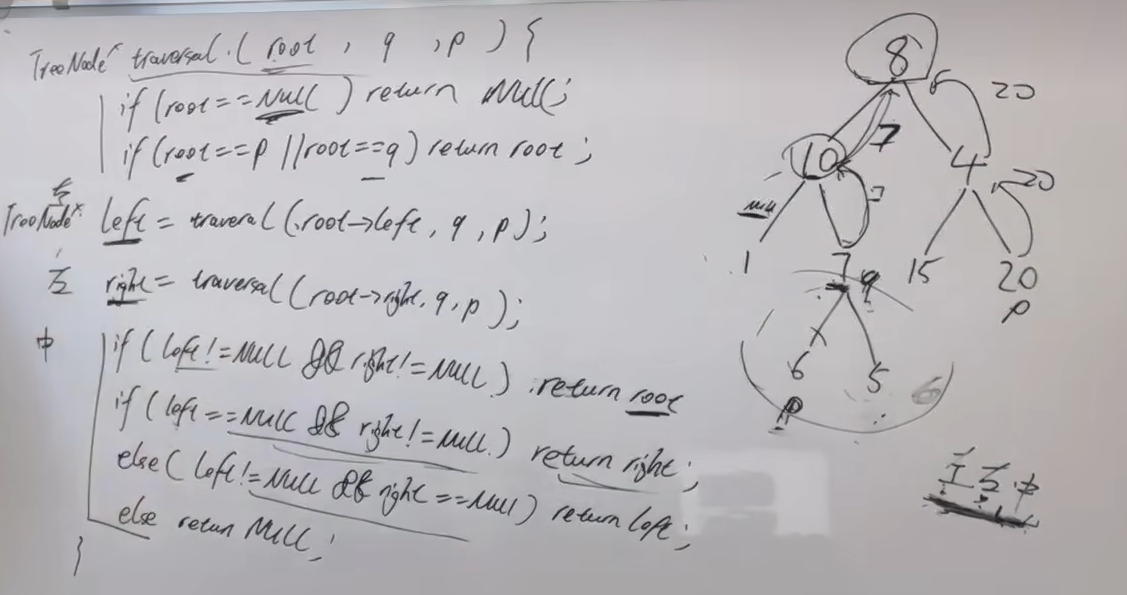 TreeNode* traversal (root, q, p) {
if (root==NULL) return NULL;
if (root==p || root==q) return root;
左
TreeNode* left = traveral (root->left, q, p);
右 right = traversal (root->right, q, p);
中 if (left!=NULL && right!=NULL) return root
if (left==NULL && right!=NULL) return right;
else (left!=NULL && right==NULL) return left;
else return NULL;
}
8
20
7
10
4
20
7
null
1
7
15
20
q
p
6
5
6
p
左右中